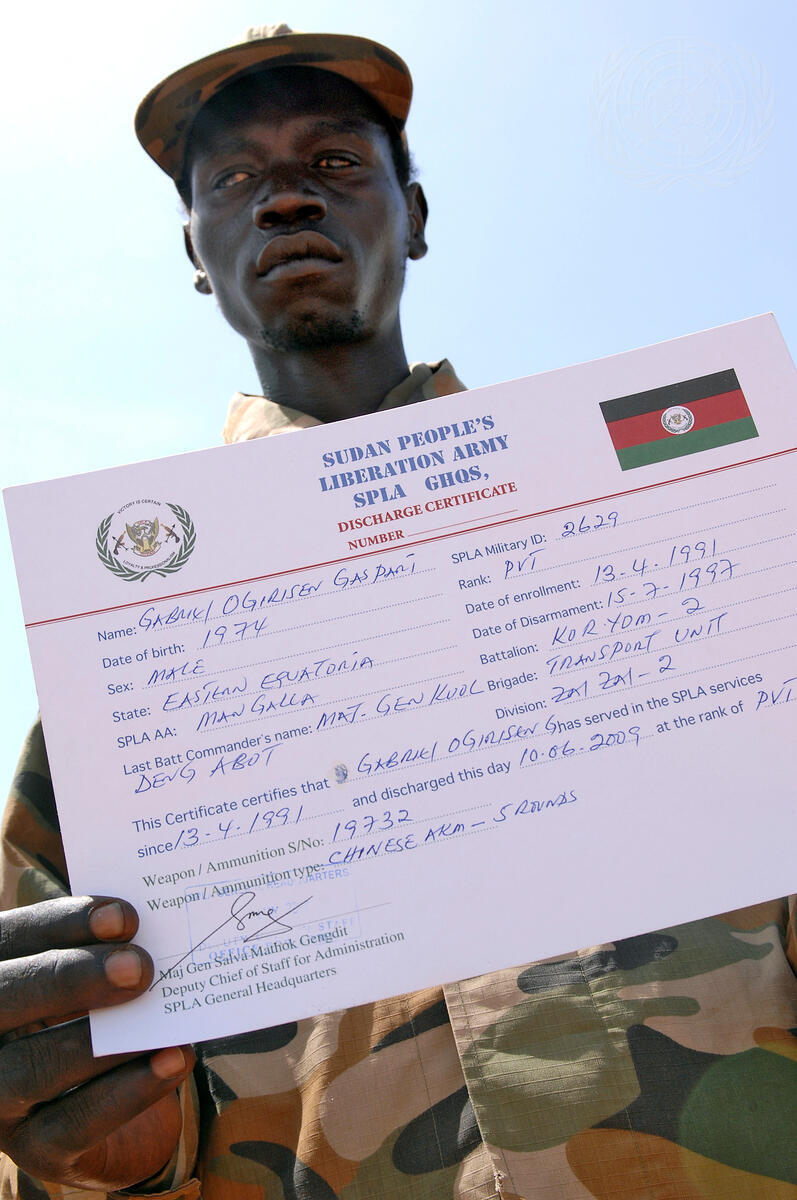 SUDAN PEOPLE'S
LIBERATION ARMY
SPLA GHQS,
DISCHARGE CERTIFICATE
NUMBER
VICTORY IS CERTAIN
LOYALTY & PROFESSIONALISM
Name: GABRIEL OGIRISEN GASPARI
Date of birth: 1974
Sex: MALE
State: EASTERN EQUATORIA
SPLA AA: MANGALLA
Last Batt Commander's name: MAJ-GEN KUOL
DENG ABOT
SPLA Military ID: 2629
Rank: PVT
Date of enrollment: 13-4-1991
Date of Disarmament: 15-7-1997
Battalion: KORYOM-2
Brigade: TRANSPORT UNIT
Division: ZAI ZAI-2
This Certificate certifies that GABRIEL OGIRISEN G has served in the SPLA services
since 13-4-1991 and discharged this day 10.06.2009 at the rank of PVT
Weapon / Ammunition S/No: 19732
Weapon / Ammunition type: CHINESE AKM - 5 ROUNDS
HEADQUARTERS
Maj Gen Salva Mathok Gengdit
Deputy Chief of Staff for Administration
SPLA General Headquarters